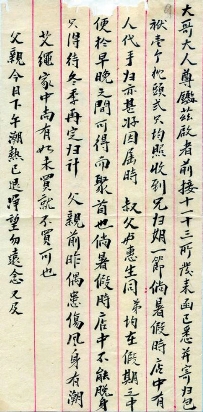 大哥大人尊鑒茲啟者前接十一十三所發来函已悉并寄归包
袱壹个枕頭弍只均照收到兄归期一節倘暑假時店中有
人代手归亦甚好因届時 叔父卢惠生同弟均在假期之中
便於早晚之間可得而聚首也倘暑假時店中不能脫身
只得待冬季再定归计 父親前昨偶患傷風身有潮
艾绳家中尚有如未買就不買可也
父親今日下午潮热已退淨望勿遠念又及